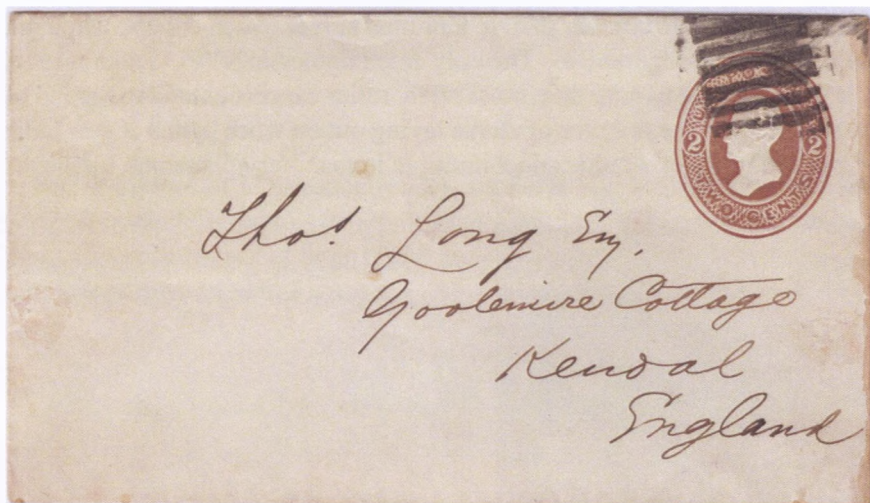 2 2
TWO CENTS
Thos. Long Esq.
Cottage
Kendal
England